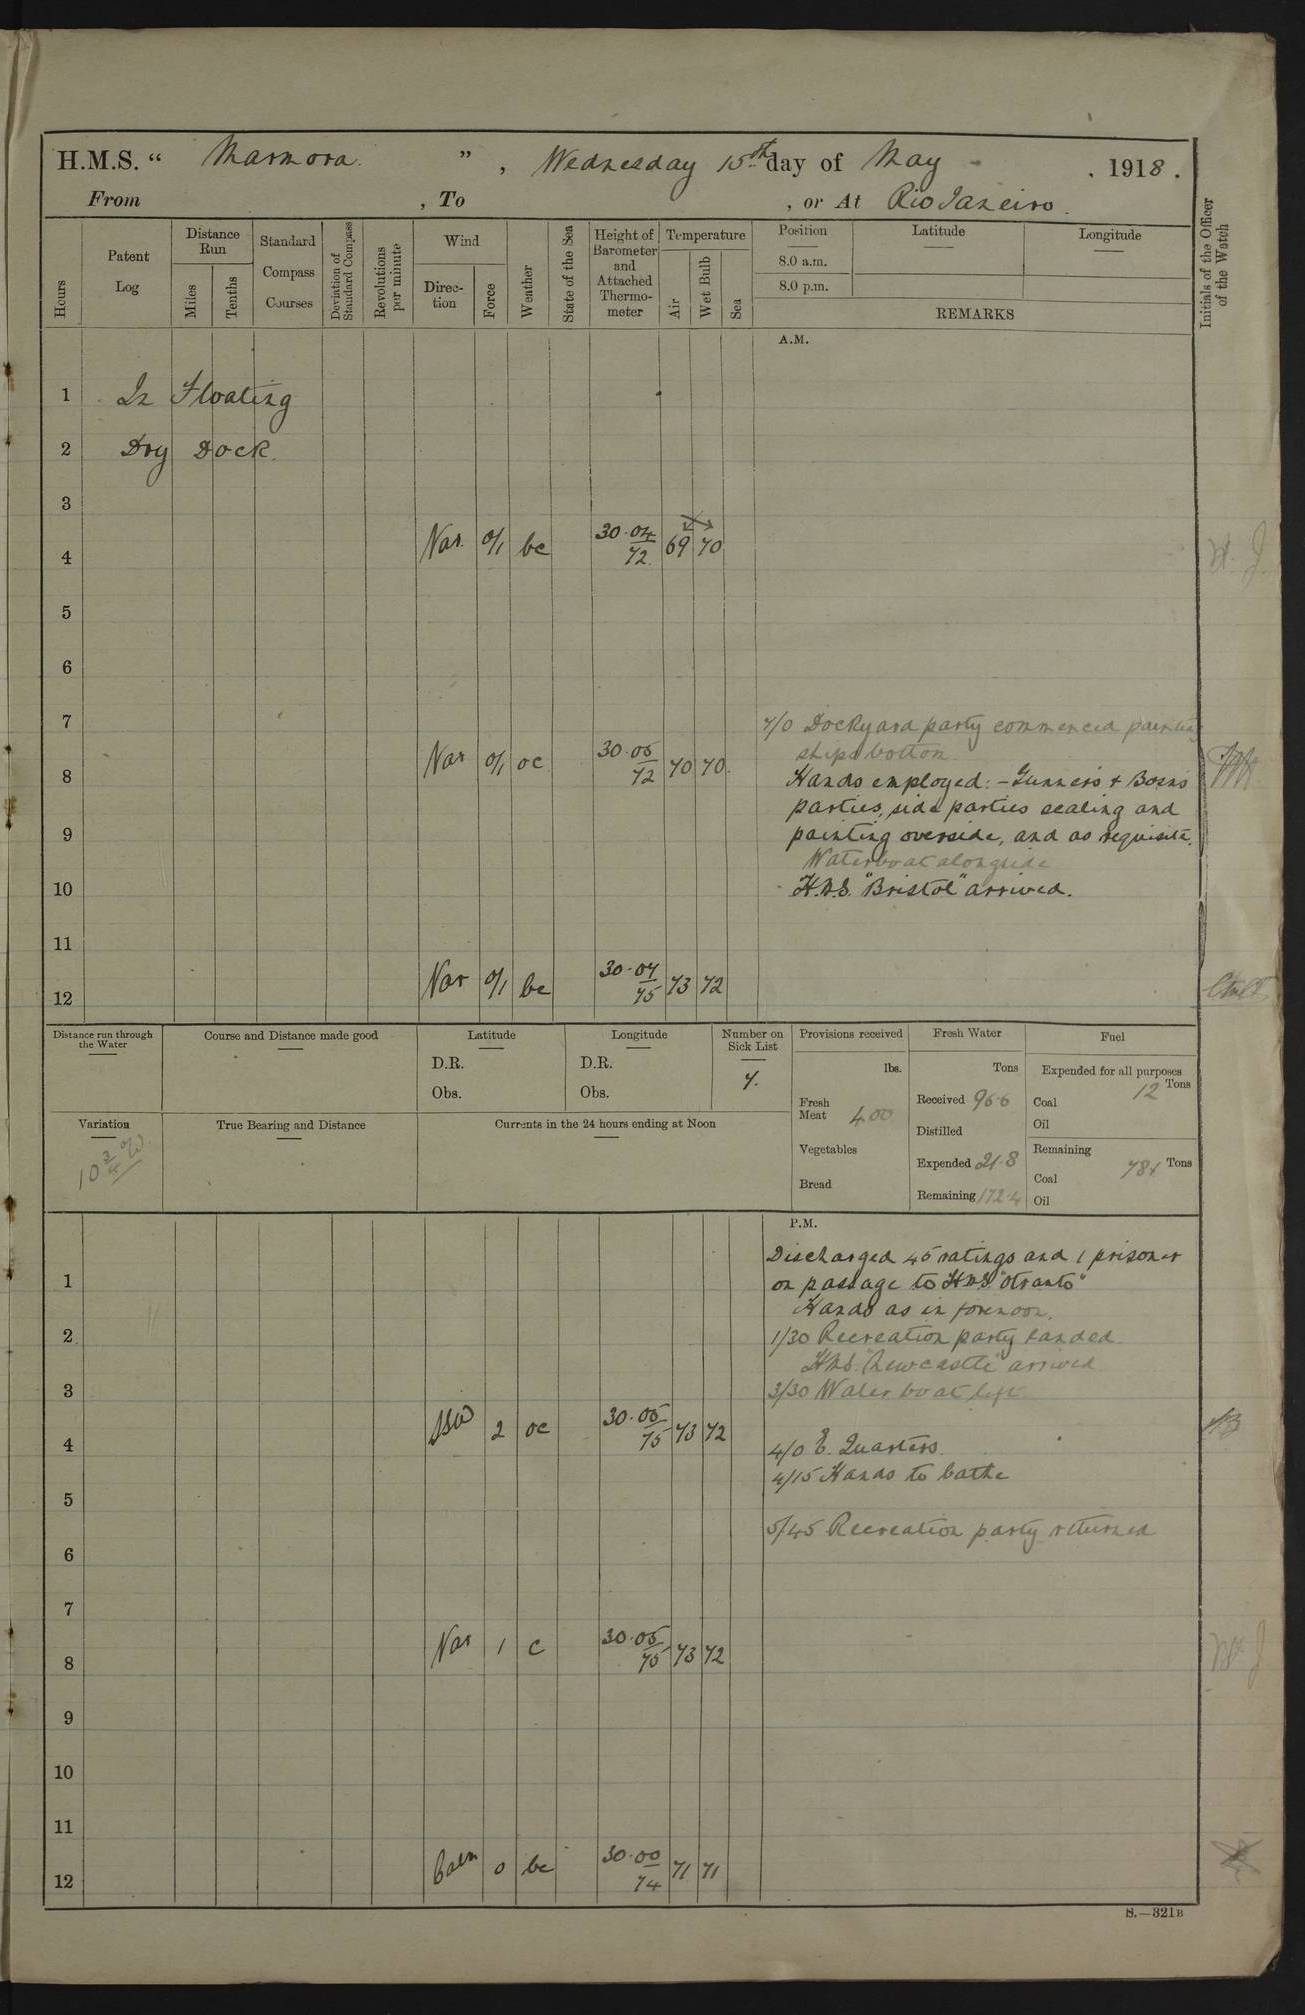 H.M.S. “ Marmora ” , Wednesday 15th day of May . 1918 .
From , To , or At Rio Janeiro .
Hours
Patent Log
Distance Run
Miles
Tenths
Standard Compass Courses
Deviation of Standard Compass
Revolutions per minute
Wind
Direction
Force
Weather
State of the Sea
Height of Barometer and Attached Thermometer
Temperature
Air
Wet Bulb
Sea
Position
8.0 a.m.
8.0 p.m.
Latitude
Longitude
REMARKS
Initials of the Officer of the Watch
A.M.
1 In Floating
2 Dry Dock.
3
4 Var. 0/1 bc 30.04 72. 69 70
5
6
7 7/0 Dockyard party commenced painting
ships bottom
8 Var 0/1 oc 30.05 72 70 70.
Hands employed:- Gunners & Bosns
parties, side parties scaling and
9 painting overside, and as requisite.
Waterboat alongside
10 H.M.S. "Bristol" arrived.
11
12 Var 0/1 bc 30.07 75 73 72
Distance run through the Water
Course and Distance made good
Latitude
D.R.
Obs.
Longitude
D.R.
Obs.
Number on Sick List
7.
Provisions received
lbs.
Fresh Meat 400
Vegetables
Bread
Fresh Water
Tons
Received 96.6
Distilled
Expended 21.8
Remaining 172.4
Fuel
Expended for all purposes
12 Tons
Coal
Oil
Remaining
Tons
Coal
Oil
Variation
10 3/4 W
True Bearing and Distance
Currents in the 24 hours ending at Noon
P.M.
Discharged 45 ratings and 1 prisoner
1 on passage to H.M.S. "Otranto"
Hands as in forenoon.
2 1/30 Recreation party landed.
H.M.S. "Newcastle" arrived
3 3/30 Water boat left
4 SSW 2 oc 30.05 75 73 72
4/0 E. Quarters.
4/15 Hands to bathe
5
5/45 Recreation party returned
6
7
8 Var 1 c 30.05 75 73 72
9
10
11
12 Calm 0 bc 30.00 74 71 71
S.—321B